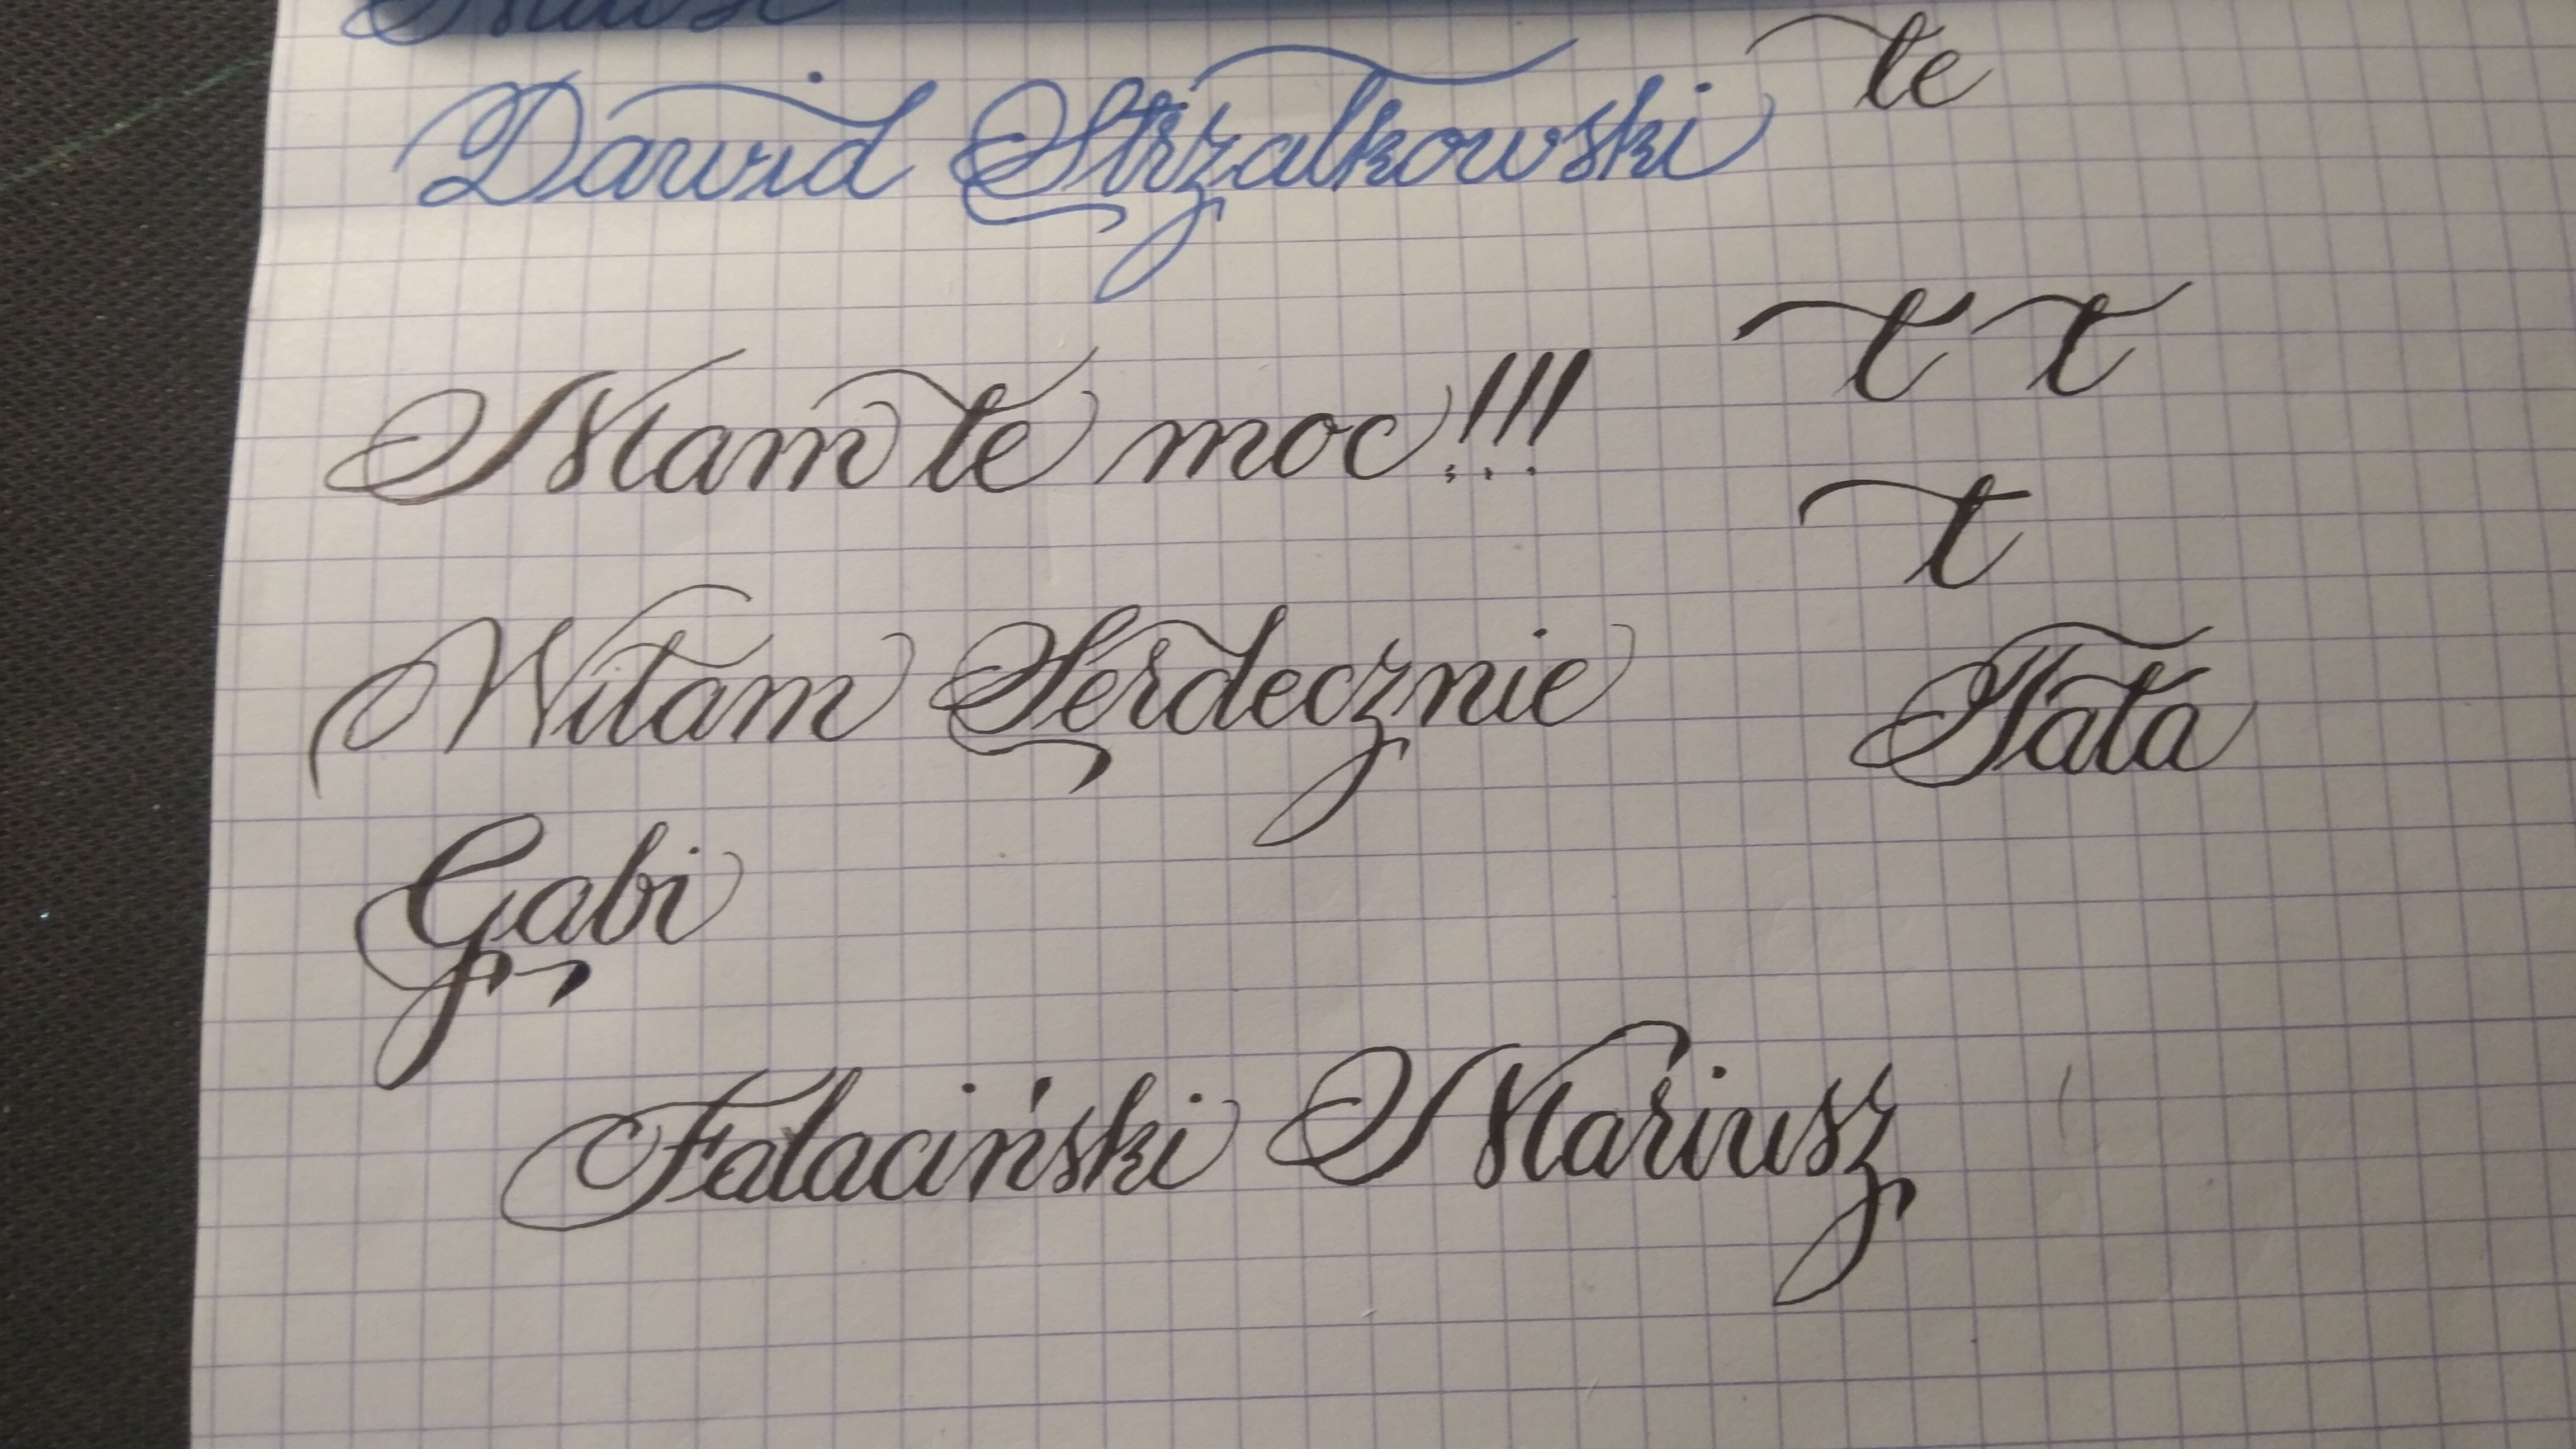 te
Dawid Strzalkowski
t t
Mam te moc!!!
t
Witam Serdecznie
Tata
Gabi
Falaciński Mariusz